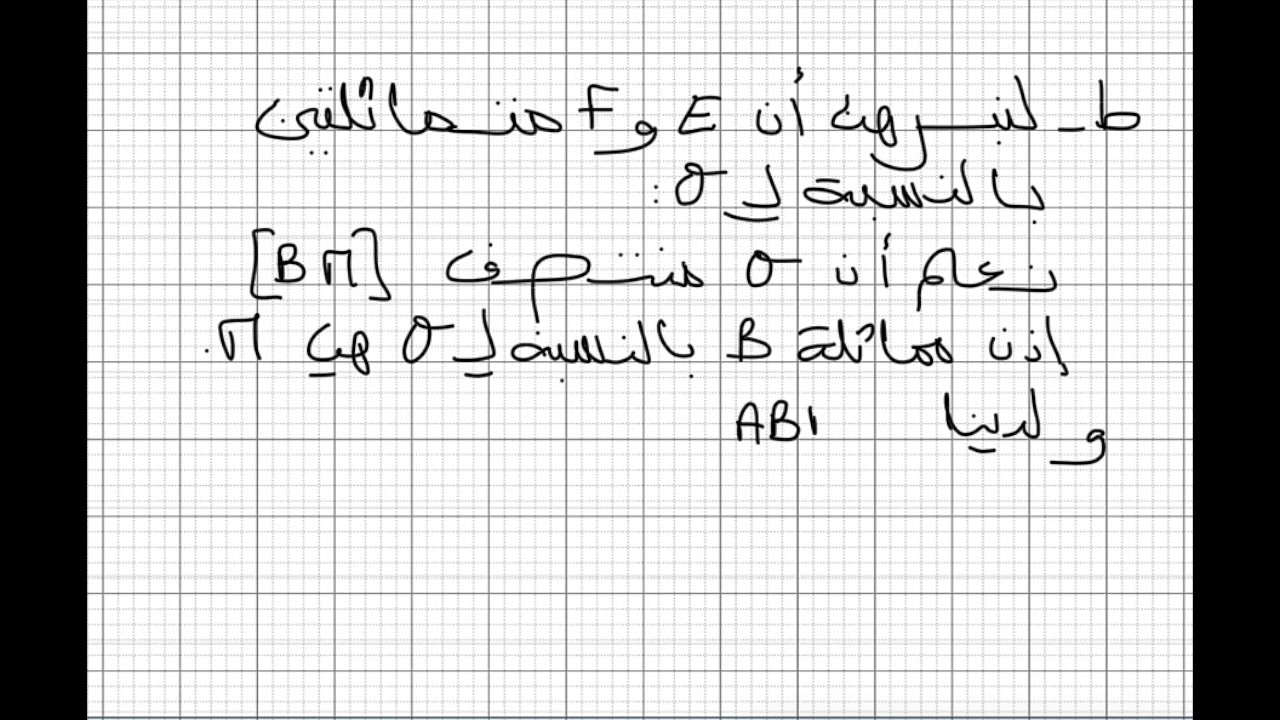 ط - لنبرهن أن E و F متماثلتين
بالنسبة لـ O :
نعلم أن O منتصف [BM]
إذن مماثلة B بالنسبة لـ O هي M.
و لدينا ABI